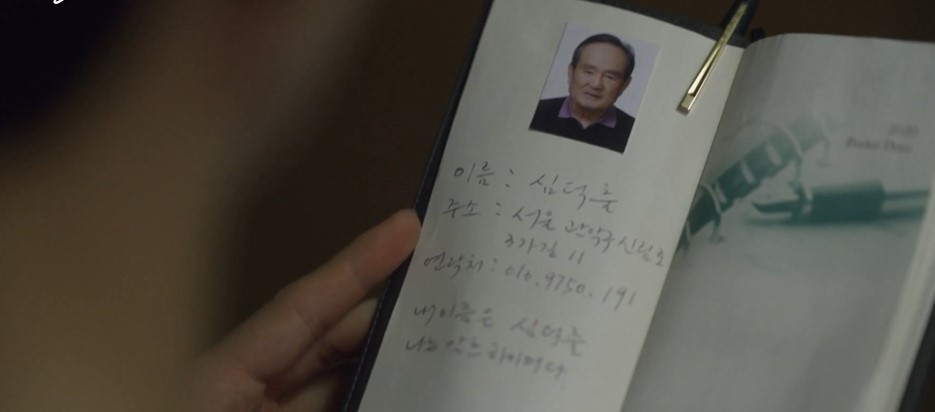 이름 : 심덕출
주소 : 서울 관악구 신림로
3가길 11
연락처 : 010.9750.191
내 이름은 심덕출
나는 알츠하이머다